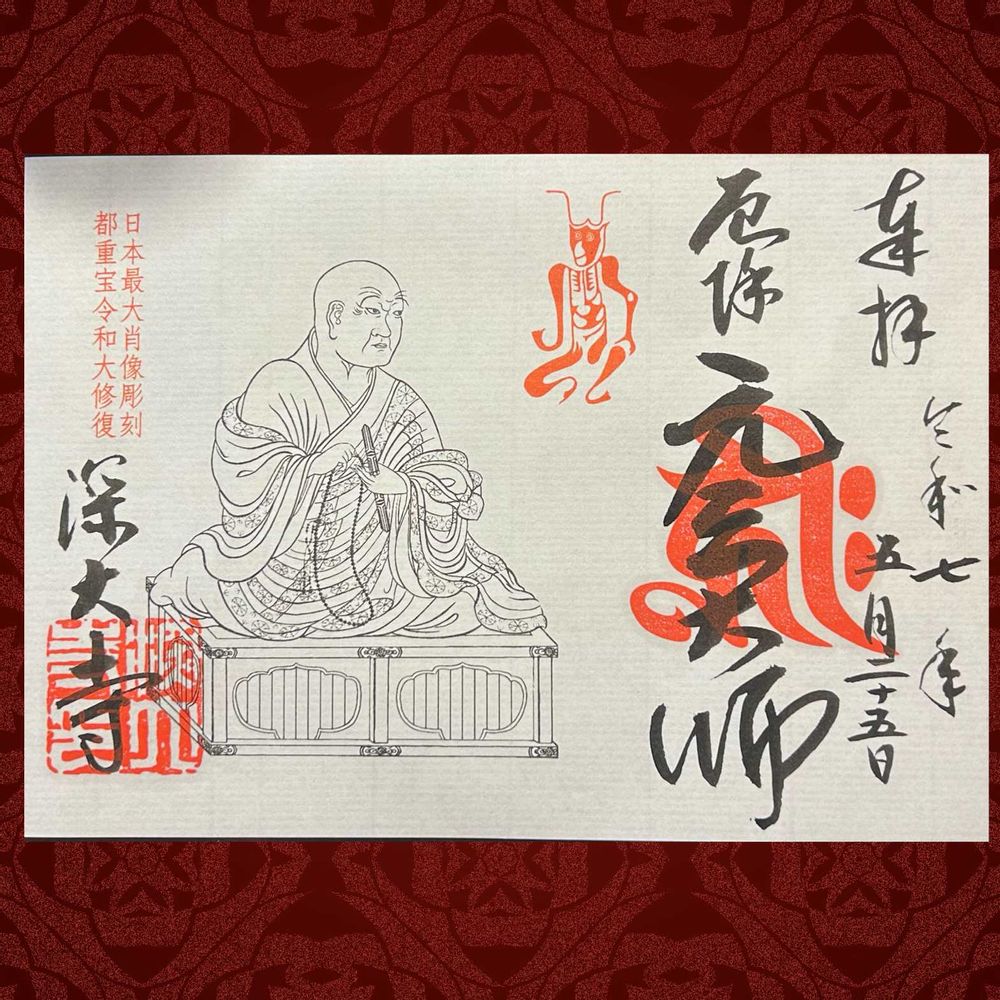 奉拝
令和七年
五月二十五日
厄除
元三大師
日本最大肖像彫刻
都重宝令和大修復
深大寺